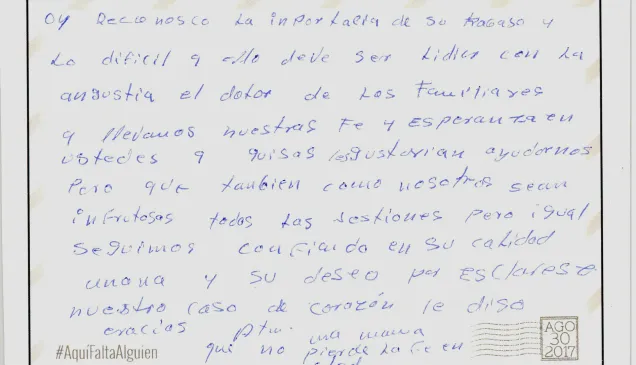 oy Reconosco La inportatia de su trabaso y
Lo dificil q ello deve ser Lidier con La
angustia el dolor de Los Familiares
q llevamos nuestras Fe y Esperanza en
ustedes q quisas les gustarian ayudarnos
Pero que tanbien como nosotros sean
infrutosas todas Las Jestiones pero igual
Seguimos confiando en su calidad
umana y su deseo por EsClareser
nuestro caso de corazón le digo
gracias Atm. una mama
que no pierde La Fe en
#AquíFaltaAlguien
AGO
30
2017